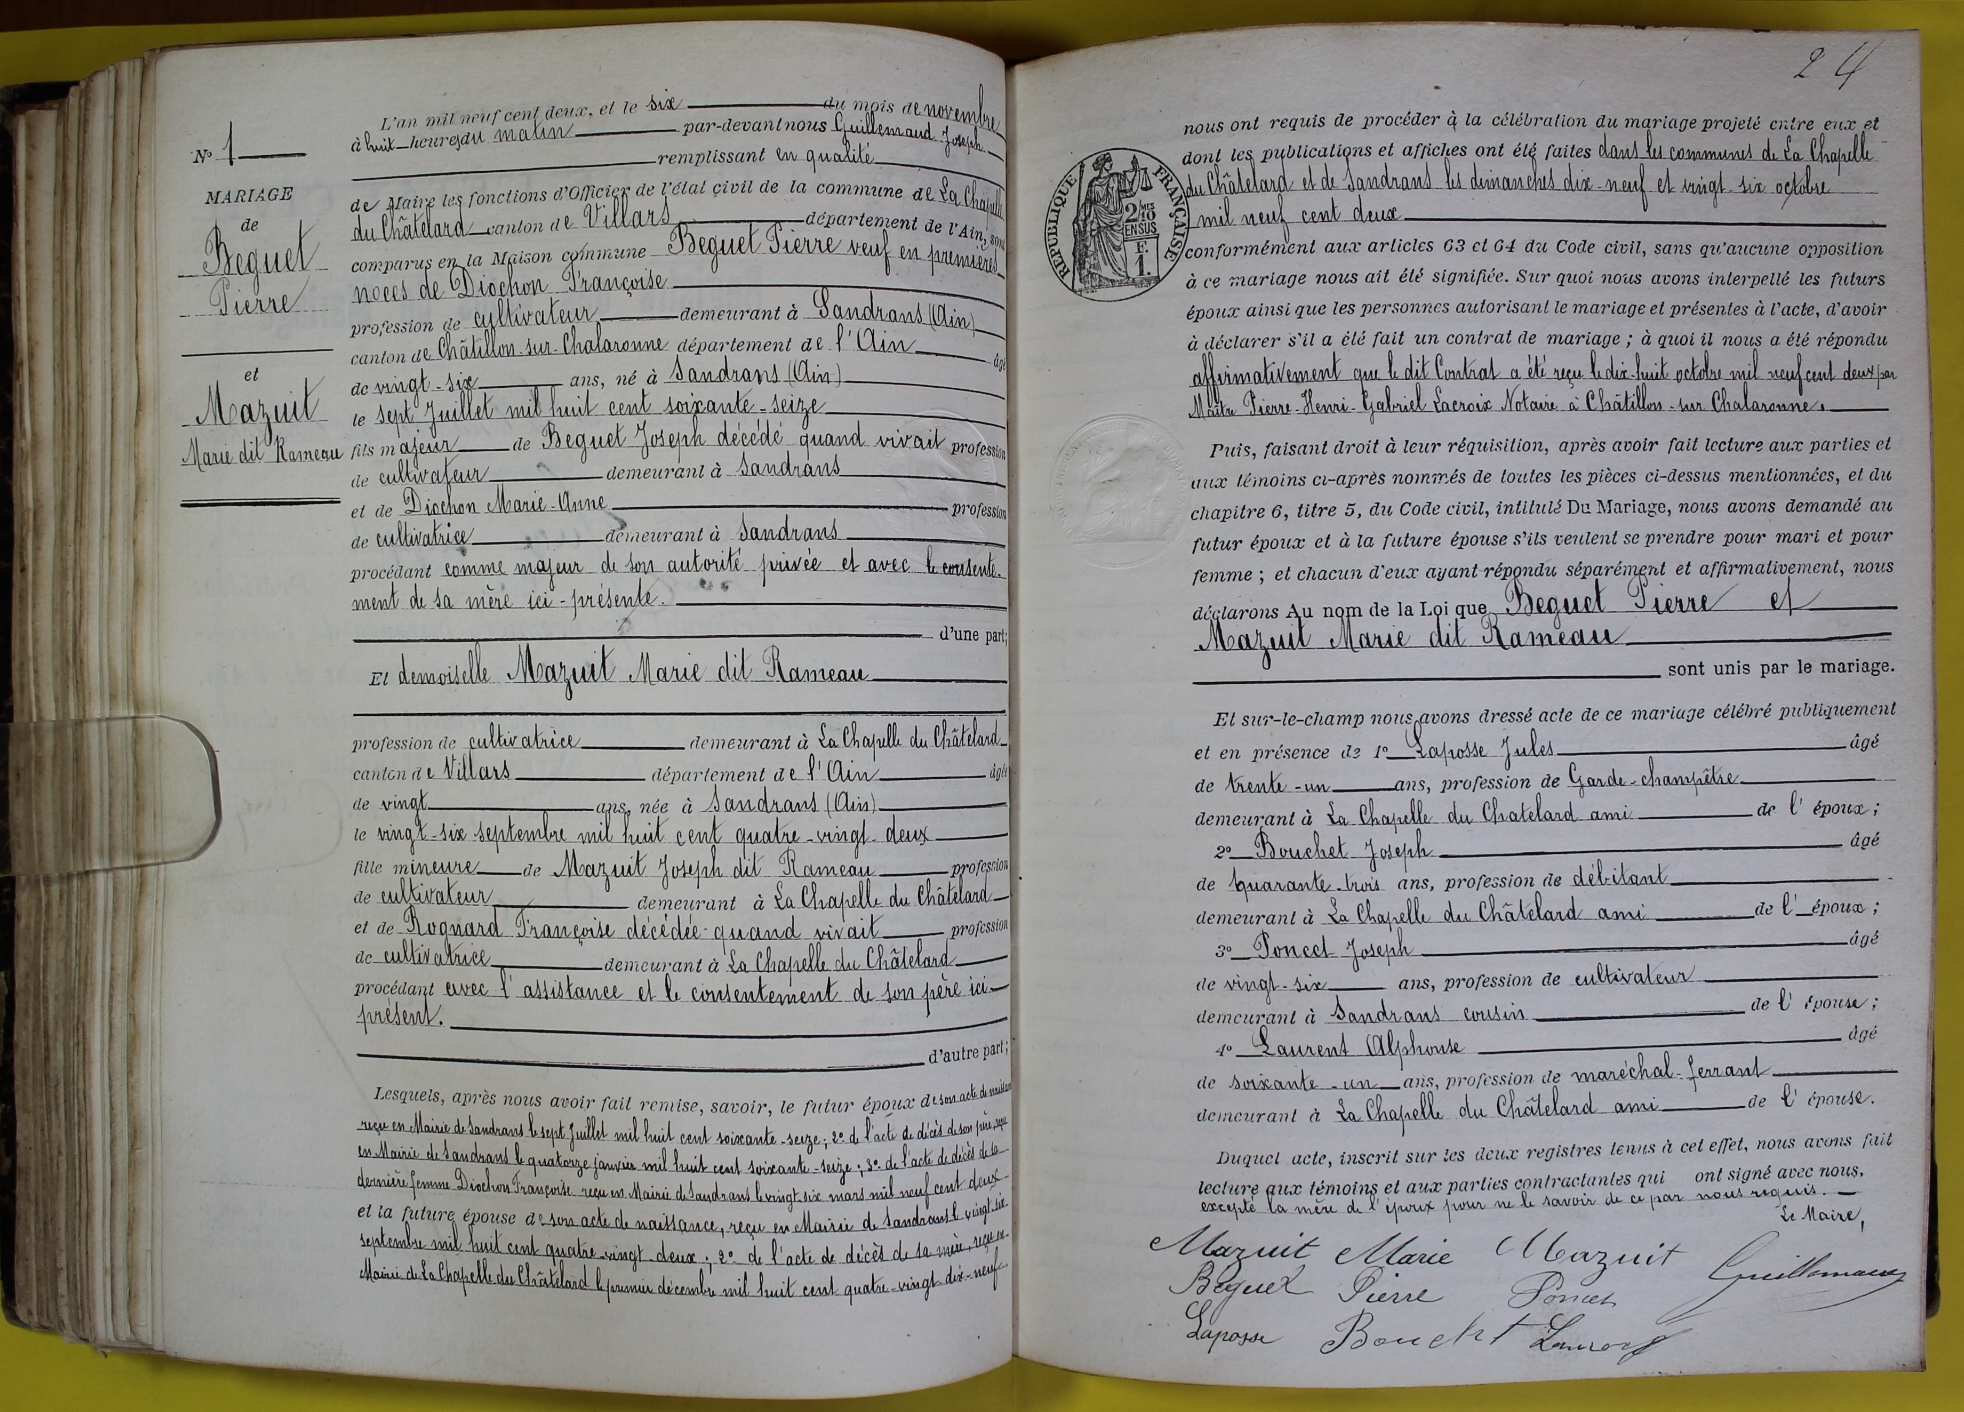 N° 1
MARIAGE
de
Beguet
Pierre
et
Mazuit
Marie dit Rameau
L'an mil neuf cent deux, et le six du mois de novembre
à huit heures du matin par-devant nous Guillemaud Joseph
remplissant en qualité
de Maire les fonctions d'Officier de l'état civil de la commune de La Chapelle
du Châtelard canton de Villars département de l'Ain, sont
comparus en la Maison commune Beguet Pierre veuf en premières
noces de Diochon Françoise
profession de cultivateur demeurant à Sandrans (Ain)
canton de Châtillon-sur-Chalaronne département de l'Ain âgé
de vingt-six ans, né à Sandrans (Ain)
le sept Juillet mil huit cent soixante-seize
fils majeur de Beguet Joseph décédé quand vivait profession
de cultivateur demeurant à Sandrans
et de Diochon Marie-Anne profession
de cultivatrice demeurant à Sandrans
procédant comme majeur de son autorité privée et avec le consente-
ment de sa mère ici-présente.
d'une part;
Et demoiselle Mazuit Marie dit Rameau
profession de cultivatrice demeurant à La Chapelle du Châtelard
canton de Villars département de l'Ain âgée
de vingt ans, née à Sandrans (Ain)
le vingt-six septembre mil huit cent quatre-vingt-deux
fille mineure de Mazuit Joseph dit Rameau profession
de cultivateur demeurant à La Chapelle du Châtelard
et de Rognard Françoise décédée quand vivait profession
de cultivatrice demeurant à La Chapelle du Châtelard
procédant avec l'assistance et le consentement de son père ici-
présent.
d'autre part;
Lesquels, après nous avoir fait remise, savoir, le futur époux de son acte de naissance
reçu en Mairie de Sandrans le sept Juillet mil huit cent soixante-seize; 2° de l'acte de décès de son père, reçu
en Mairie de Sandrans le quatorze janvier mil huit cent soixante-seize; 3° de l'acte de décès de la
dernière femme Diochon Françoise reçu en Mairie de Sandrans le vingt-six mars mil neuf cent deux
et la future épouse de son acte de naissance, reçu en Mairie de Sandrans le vingt-six
septembre mil huit cent quatre-vingt-deux; 2° de l'acte de décès de sa mère, reçu en
Mairie de La Chapelle du Châtelard le premier décembre mil huit cent quatre-vingt-dix-neuf
24
nous ont requis de procéder à la célébration du mariage projeté entre eux et
dont les publications et affiches ont été faites dans les communes de La Chapelle
du Châtelard et de Sandrans les dimanches dix-neuf et vingt-six octobre
mil neuf cent deux
conformément aux articles 63 et 64 du Code civil, sans qu'aucune opposition
à ce mariage nous ait été signifiée. Sur quoi nous avons interpellé les futurs
époux ainsi que les personnes autorisant le mariage et présentes à l'acte, d'avoir
à déclarer s'il a été fait un contrat de mariage; à quoi il nous a été répondu
affirmativement que le dit Contrat a été reçu le dix-huit octobre mil neuf cent deux par
Maître Pierre-Henri-Gabriel Lacroix Notaire à Châtillon-sur-Chalaronne.
RÉPUBLIQUE FRANÇAISE
2 MES 10
EN SUS
F.
1.
Puis, faisant droit à leur réquisition, après avoir fait lecture aux parties et
aux témoins ci-après nommés de toutes les pièces ci-dessus mentionnées, et du
chapitre 6, titre 5, du Code civil, intitulé Du Mariage, nous avons demandé au
futur époux et à la future épouse s'ils veulent se prendre pour mari et pour
femme; et chacun d'eux ayant répondu séparément et affirmativement, nous
déclarons Au nom de la Loi que Beguet Pierre et
Mazuit Marie dit Rameau
sont unis par le mariage.
Et sur-le-champ nous avons dressé acte de ce mariage célébré publiquement
et en présence de 1° Laposse Jules âgé
de trente-un ans, profession de Garde-champêtre
demeurant à La Chapelle du Chatelard ami de l'époux;
2° Bouchet Joseph âgé
de quarante-trois ans, profession de débitant
demeurant à La Chapelle du Châtelard ami de l'époux;
3° Poncet Joseph âgé
de vingt-six ans, profession de cultivateur
demeurant à Sandrans cousin de l'épouse;
4° Laurent Alphonse âgé
de soixante-un ans, profession de maréchal-ferrant
demeurant à La Chapelle du Châtelard ami de l'épouse.
Duquel acte, inscrit sur les deux registres tenus à cet effet, nous avons fait
lecture aux témoins et aux parties contractantes qui ont signé avec nous,
excepté la mère de l'époux pour ne le savoir de ce par nous requis.
Le Maire,
Mazuit Marie Mazuit Guillemaud
Beguet Pierre Poncet
Laposse Bouchet Laurent